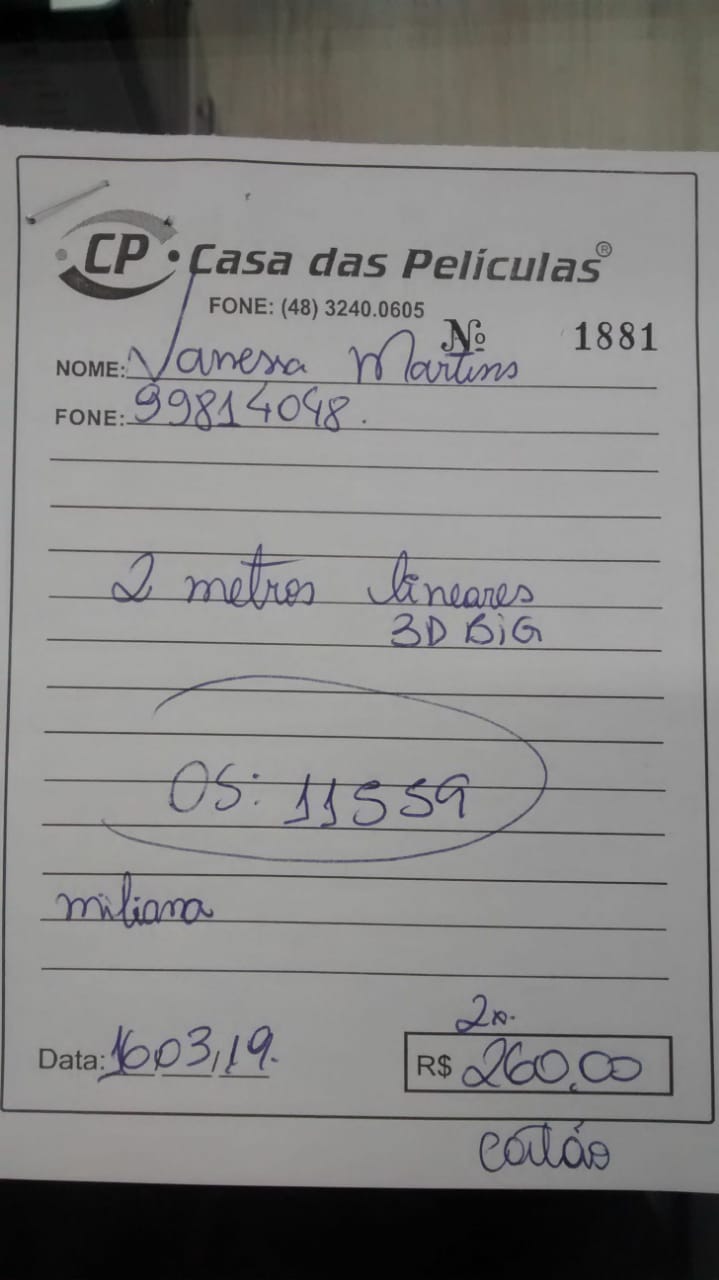 CP Casa das Películas®
FONE: (48) 3240.0605
Nº 1881
NOME: Vanessa Martins
FONE: 99814048.
2 metros lineares
3D BiG
OS: 11559
miliana
2x.
Data: 16,03,19. R$ 260,00
cartão